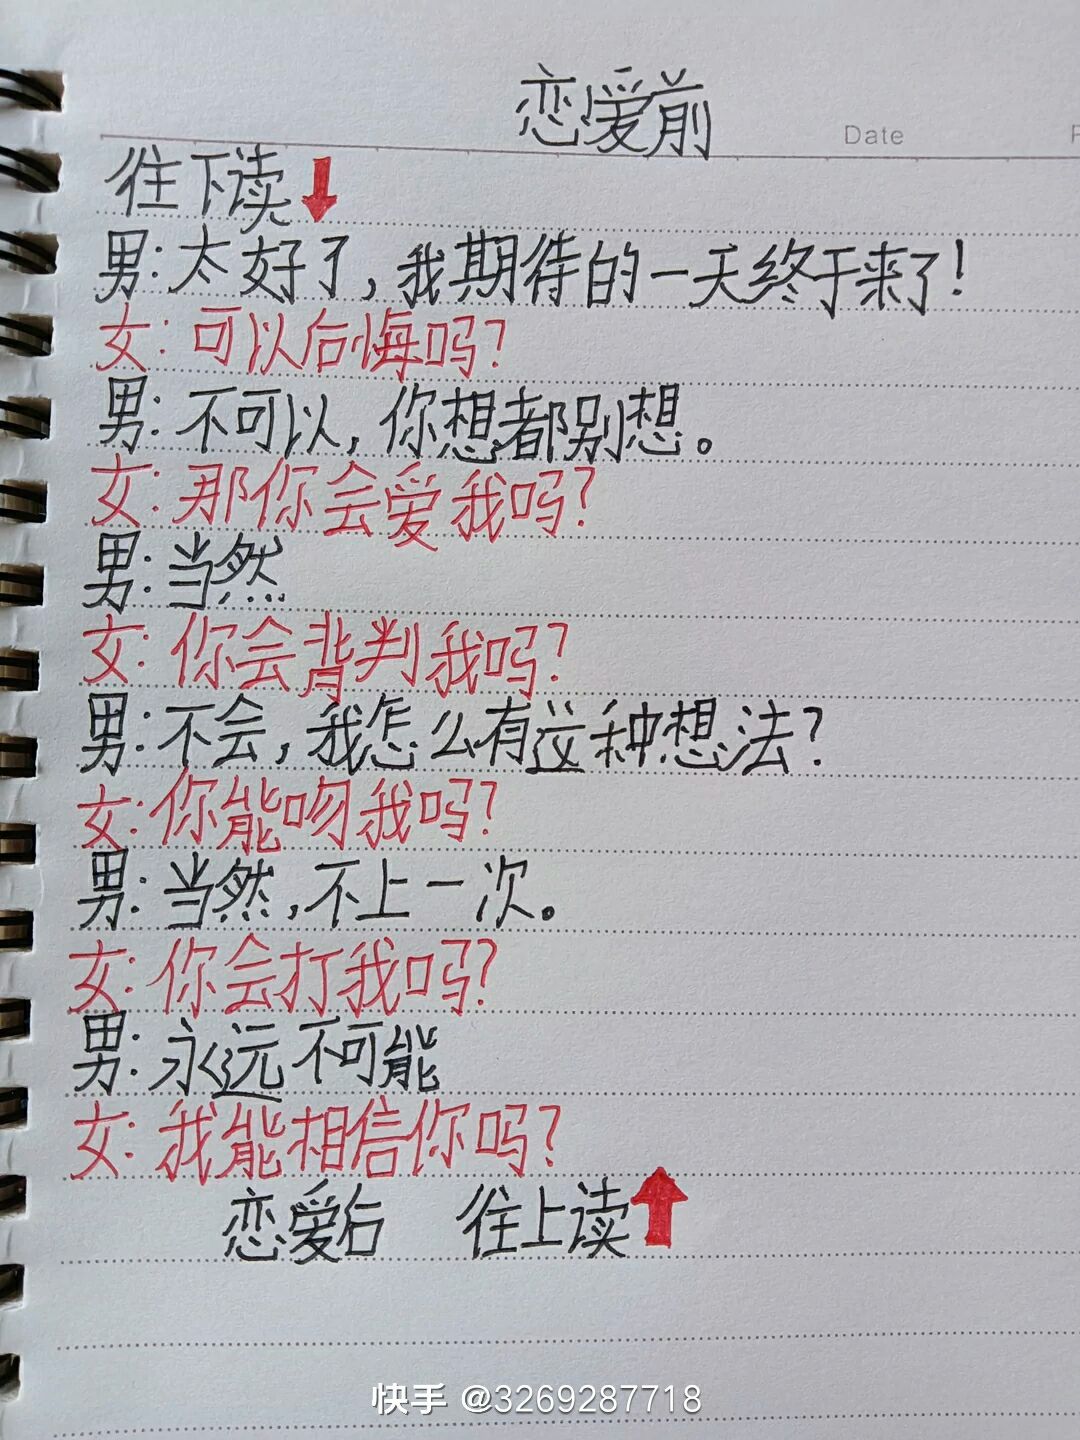 恋爱前
Date
往下读
男:太好了,我期待的一天终于来了!
女:可以后悔吗?
男:不可以,你想都别想。
女:那你会爱我吗?
男:当然
女:你会背判我吗?
男:不会,我怎么有这种想法?
女:你能吻我吗?
男:当然,不上一次。
女:你会打我吗?
男:永远不可能
女:我能相信你吗?
恋爱后 往上读
快手 @3269287718